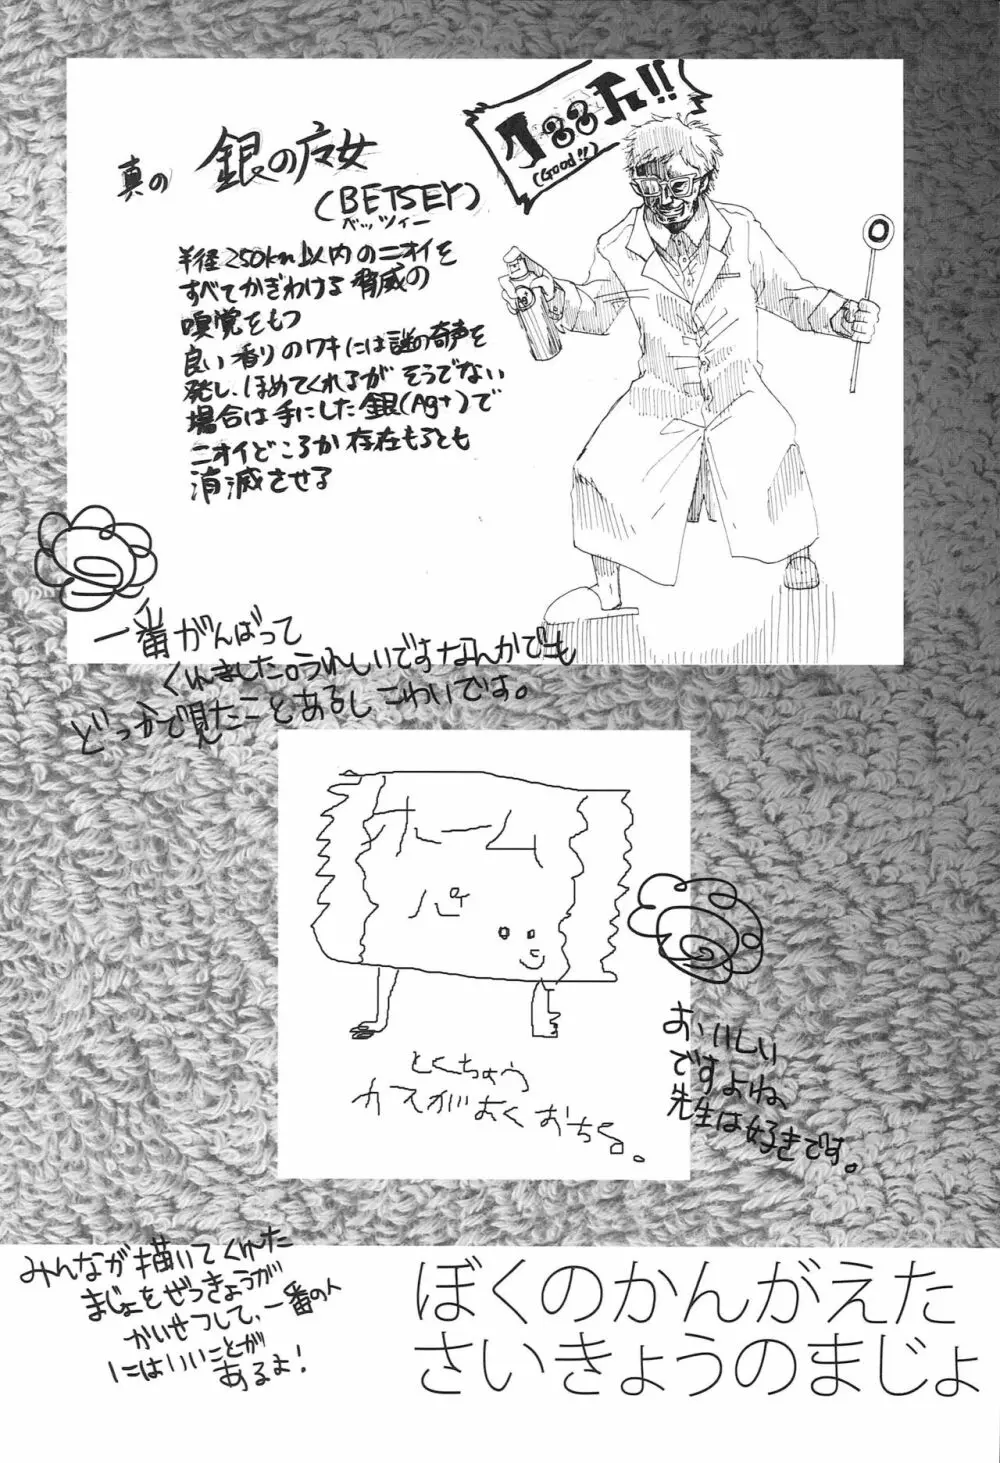 グッド!!
(Good!!)
真の 銀の魔女
(BETSEY)
ベッツィー
半径250km以内のニオイを
すべてかぎわける脅威の
嗅覚をもつ
良い香りのワキには謎の奇声を
発し、ほめてくれるがそうでない
場合は手にした銀(Ag+)で
ニオイどころか存在もろとも
消滅させる
一番がんばって
くれました。うれしいですなんかでも
どっかで見たことあるしこわいです。
ナーム
パイ
とくちょう
カスがよくおちる。
おいしい
ですよね、
先生は好きです。
みんなが描いてくれた
まじょをぜっきょうが
かいせつして、一番の人
にはいいことが
あるよ!
ぼくのかんがえた
さいきょうのまじょ